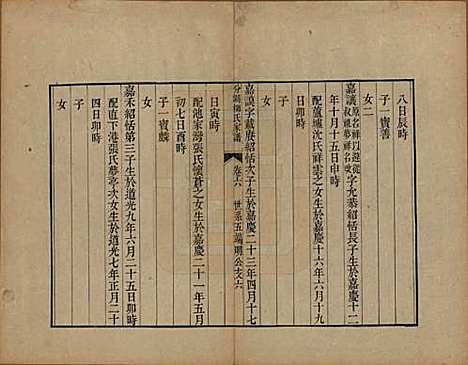 八日辰時
子一寶善
女二
嘉讓原名祥以避從叔祖夢祥名改字允恭紹恬長子生於嘉慶十二
年十月十五日申時
配蘆墟沈氏祥雲之女生於嘉慶十六年六月十九
日卯時
子
女
嘉謨字載賡紹恬次子生於嘉慶二十三年四月十七
分湖柳氏家譜 卷六 世系五端明公支六
日寅時
配池家灣張氏懷蒼之女生於嘉慶二十一年五月
初七日酉時
子一寶麟
女
嘉禾紹恬第三子生於道光九年六月二十五日卯時
配直下港張氏夢亭次女生於道光七年正月二十
四日卯時
子
女